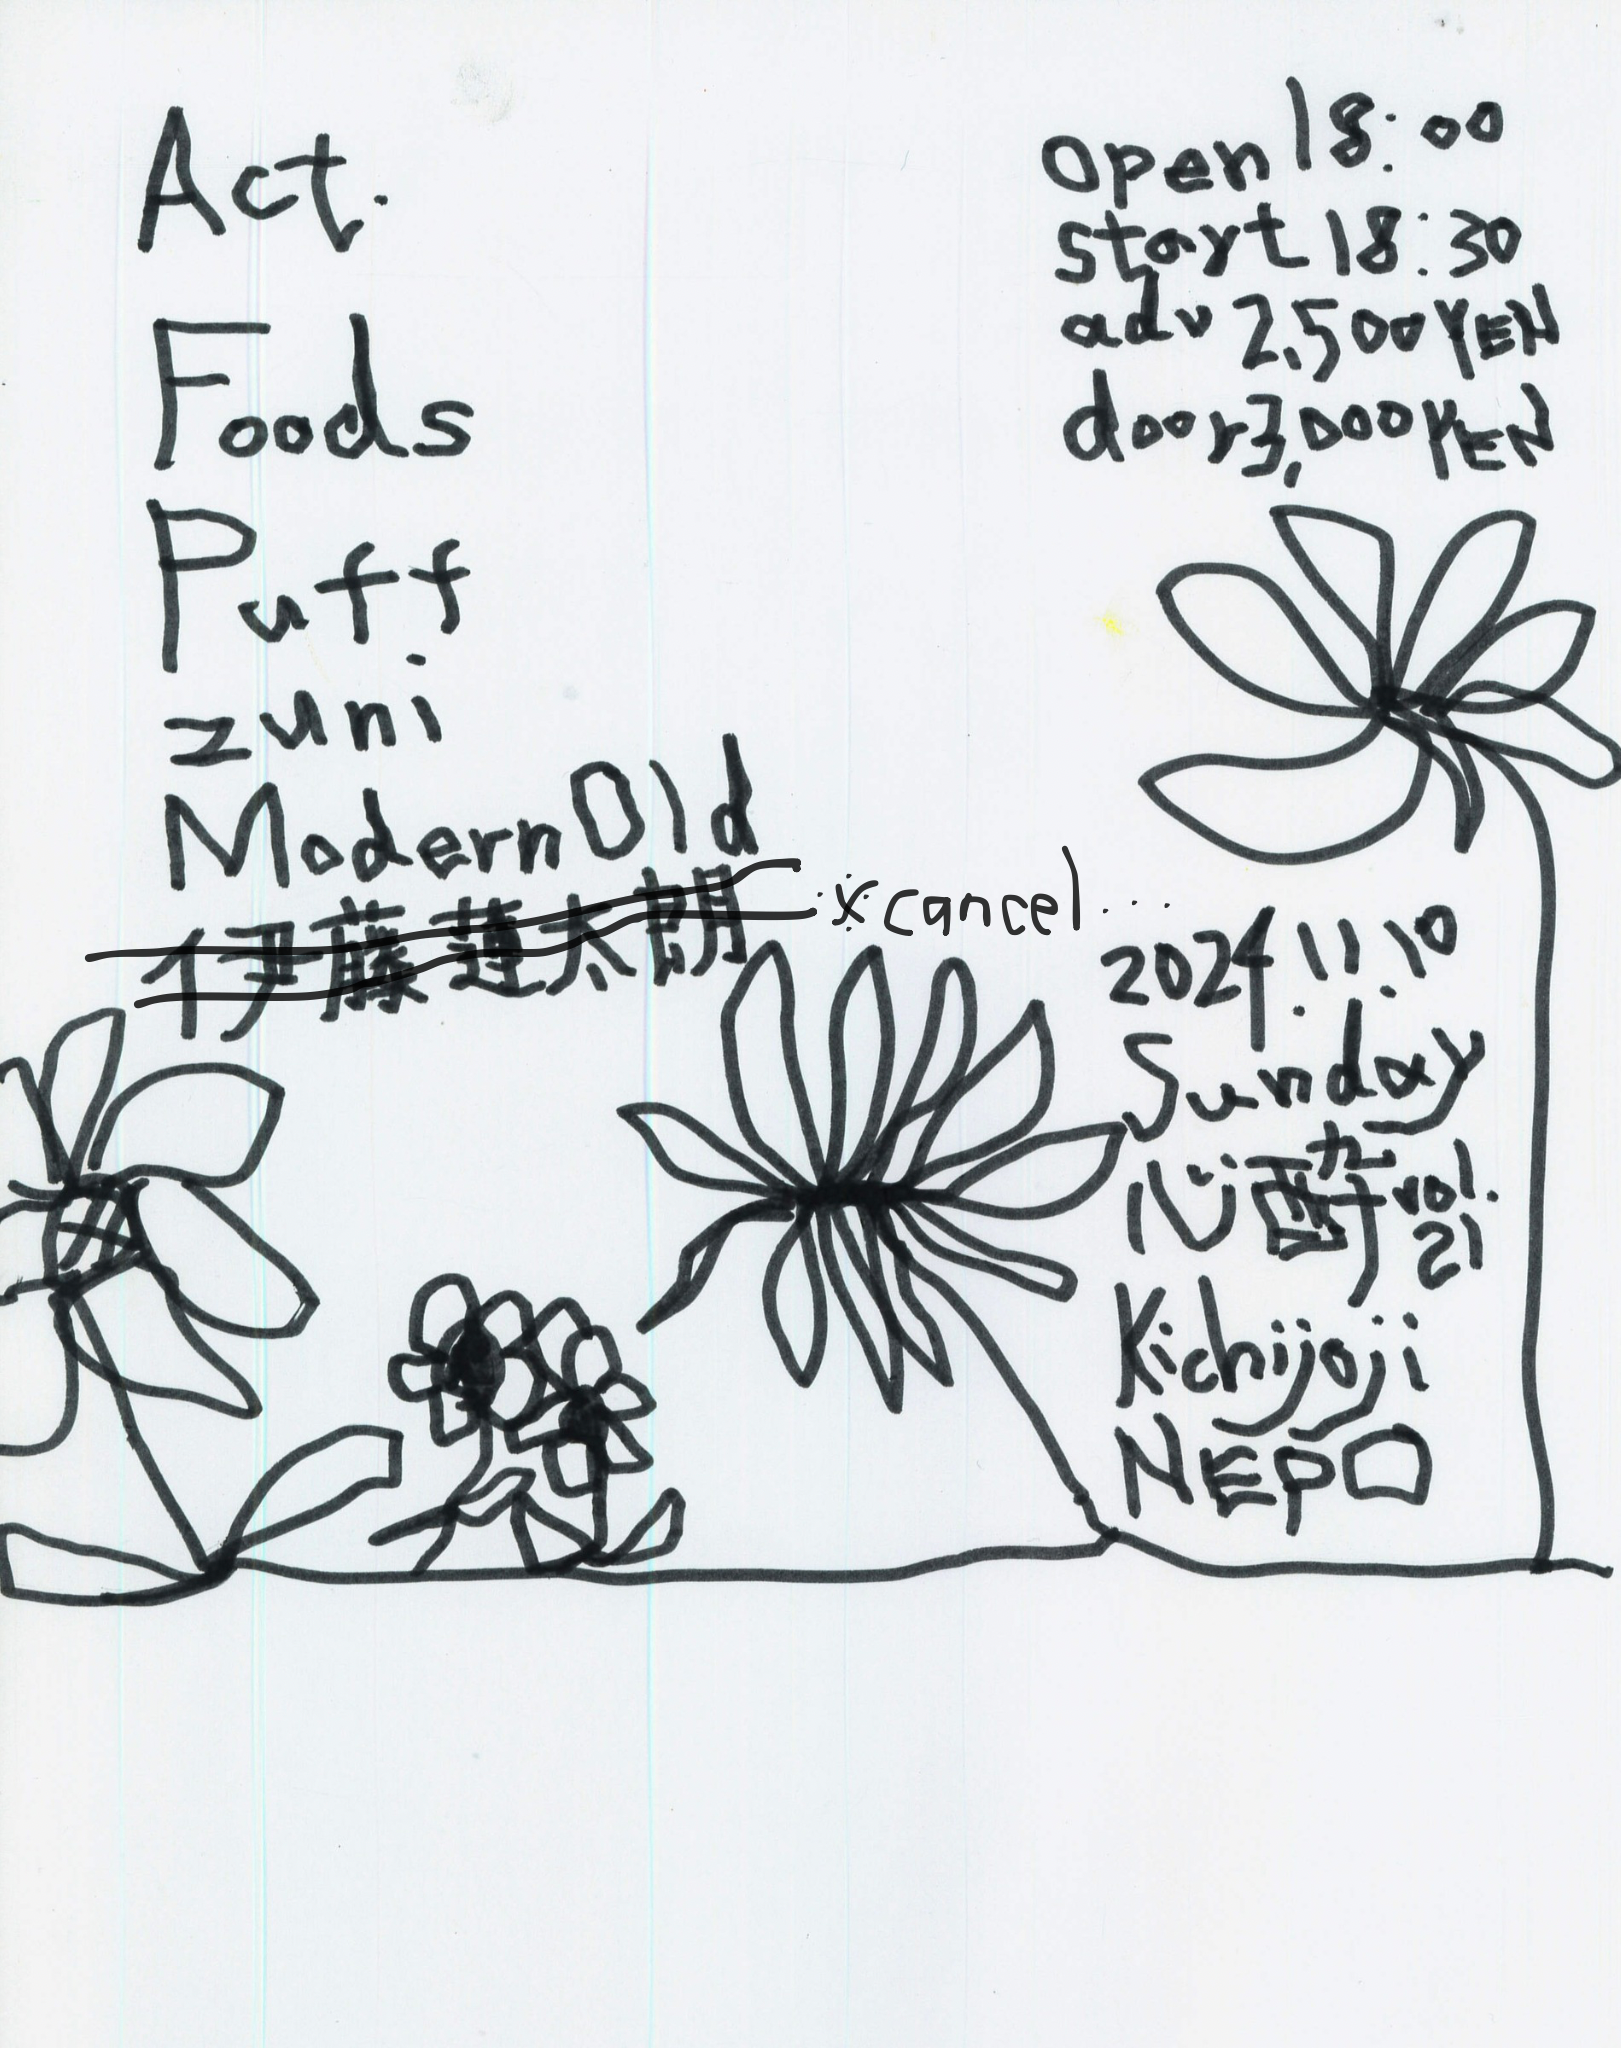 Act.
Foods
Puff
zuni
ModernOld
伊藤蓮太朗 ※cancel...
open 18:00
start 18:30
adv 2,500 YEN
door 3,000 YEN
2024.11.10
Sunday
心酔 vol.
21
Kichijoji
NEPO